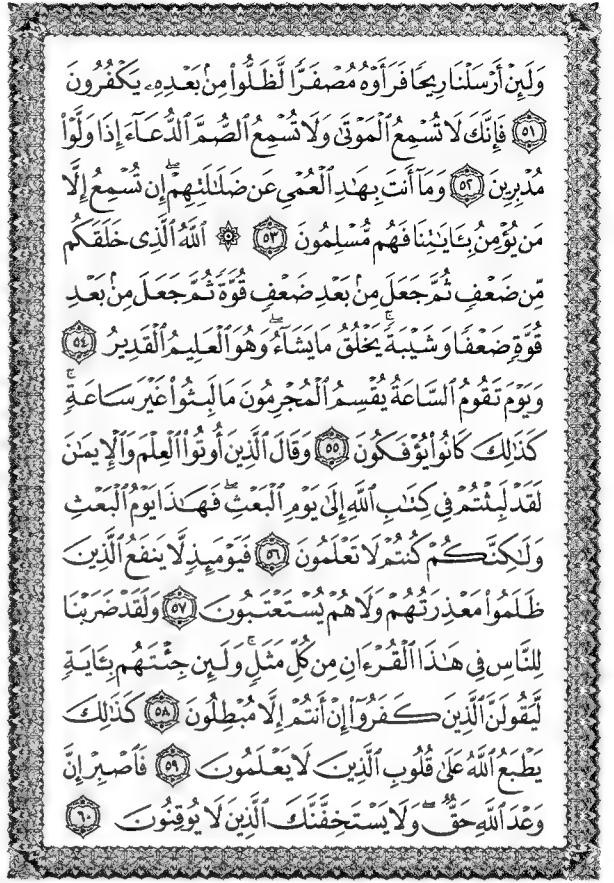 وَلَئِنْ أَرْسَلْنَا رِيحًا فَرَأَوْهُ مُصْفَرًّا لَّظَلُّوا۟ مِنۢ بَعْدِهِۦ يَكْفُرُونَ
﴿٥١﴾ فَإِنَّكَ لَا تُسْمِعُ ٱلْمَوْتَىٰ وَلَا تُسْمِعُ ٱلصُّمَّ ٱلدُّعَآءَ إِذَا وَلَّوْا۟
مُدْبِرِينَ ﴿٥٢﴾ وَمَآ أَنتَ بِهَـٰدِ ٱلْعُمْىِ عَن ضَلَـٰلَتِهِمْ ۖ إِن تُسْمِعُ إِلَّا
مَن يُؤْمِنُ بِـَٔايَـٰتِنَا فَهُم مُّسْلِمُونَ ﴿٥٣﴾ ۞ ٱللَّهُ ٱلَّذِى خَلَقَكُم
مِّن ضَعْفٍ ثُمَّ جَعَلَ مِنۢ بَعْدِ ضَعْفٍ قُوَّةً ثُمَّ جَعَلَ مِنۢ بَعْدِ
قُوَّةٍ ضَعْفًا وَشَيْبَةً ۚ يَخْلُقُ مَا يَشَآءُ ۖ وَهُوَ ٱلْعَلِيمُ ٱلْقَدِيرُ ﴿٥٤﴾
وَيَوْمَ تَقُومُ ٱلسَّاعَةُ يُقْسِمُ ٱلْمُجْرِمُونَ مَا لَبِثُوا۟ غَيْرَ سَاعَةٍ ۚ
كَذَٰلِكَ كَانُوا۟ يُؤْفَكُونَ ﴿٥٥﴾ وَقَالَ ٱلَّذِينَ أُوتُوا۟ ٱلْعِلْمَ وَٱلْإِيمَـٰنَ
لَقَدْ لَبِثْتُمْ فِى كِتَـٰبِ ٱللَّهِ إِلَىٰ يَوْمِ ٱلْبَعْثِ ۖ فَهَـٰذَا يَوْمُ ٱلْبَعْثِ
وَلَـٰكِنَّكُمْ كُنتُمْ لَا تَعْلَمُونَ ﴿٥٦﴾ فَيَوْمَئِذٍ لَّا يَنفَعُ ٱلَّذِينَ
ظَلَمُوا۟ مَعْذِرَتُهُمْ وَلَا هُمْ يُسْتَعْتَبُونَ ﴿٥٧﴾ وَلَقَدْ ضَرَبْنَا
لِلنَّاسِ فِى هَـٰذَا ٱلْقُرْءَانِ مِن كُلِّ مَثَلٍ ۚ وَلَئِن جِئْتَهُم بِـَٔايَةٍ
لَّيَقُولَنَّ ٱلَّذِينَ كَفَرُوٓا۟ إِنْ أَنتُمْ إِلَّا مُبْطِلُونَ ﴿٥٨﴾ كَذَٰلِكَ
يَطْبَعُ ٱللَّهُ عَلَىٰ قُلُوبِ ٱلَّذِينَ لَا يَعْلَمُونَ ﴿٥٩﴾ فَٱصْبِرْ إِنَّ
وَعْدَ ٱللَّهِ حَقٌّ ۖ وَلَا يَسْتَخِفَّنَّكَ ٱلَّذِينَ لَا يُوقِنُونَ ﴿٦٠﴾